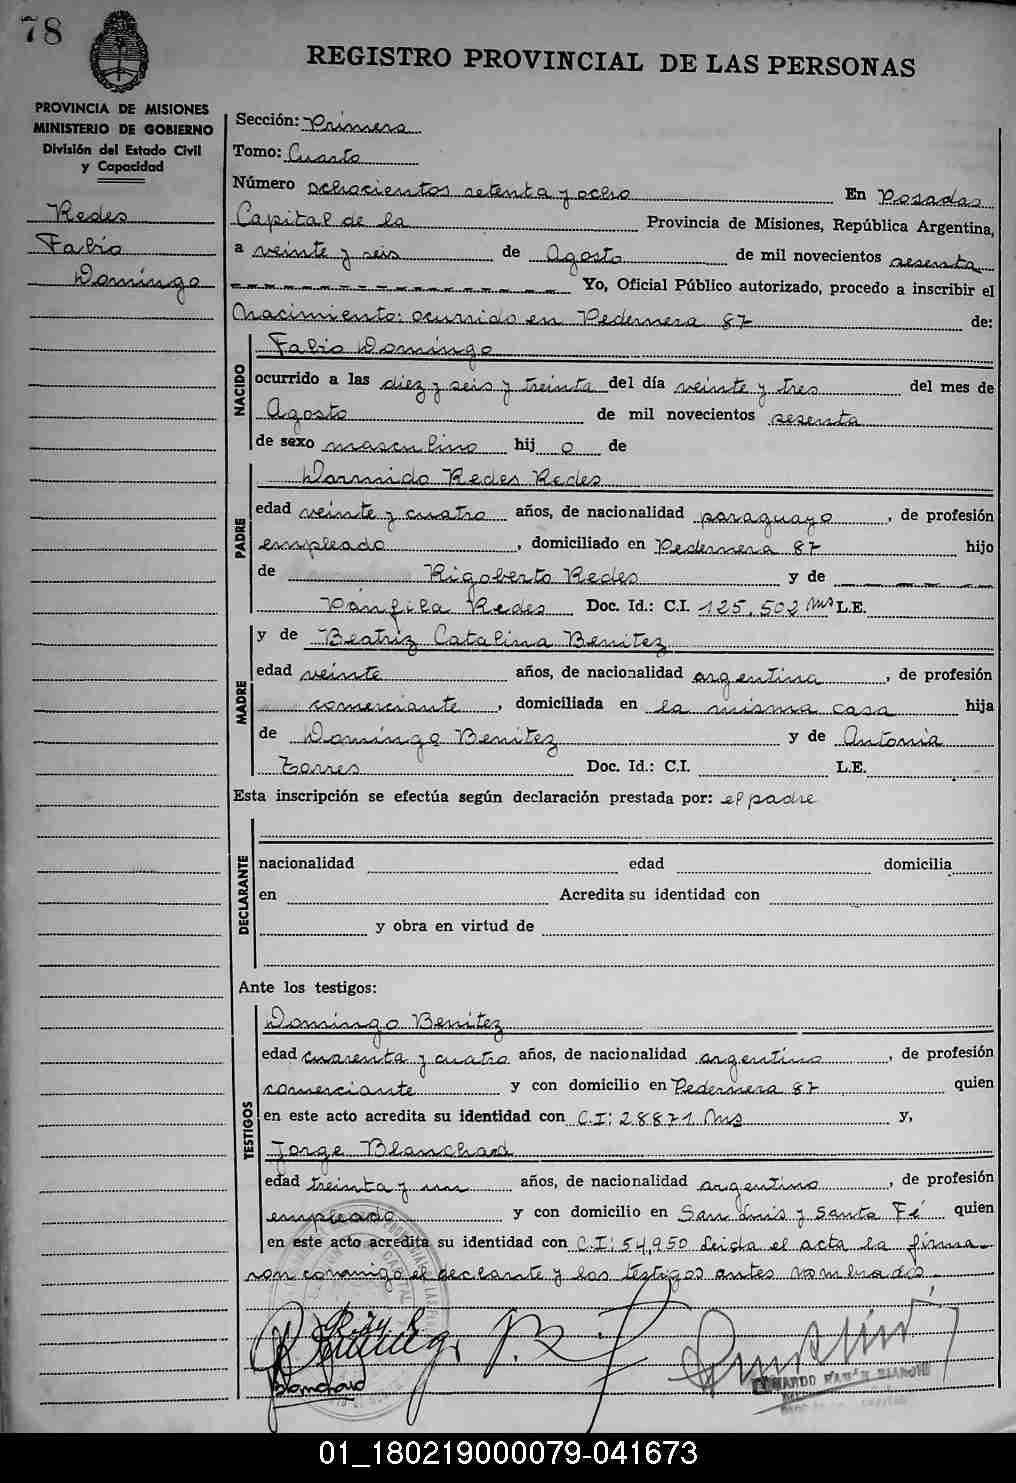 78
REGISTRO PROVINCIAL DE LAS PERSONAS
PROVINCIA DE MISIONES
MINISTERIO DE GOBIERNO
División del Estado Civil
y Capacidad
Redes
Fabio
Domingo
Sección: Primera
Tomo: Cuarto
Número ochocientos setenta y ocho En Posadas
Capital de la Provincia de Misiones, República Argentina,
a veinte y seis de Agosto de mil novecientos sesenta
Yo, Oficial Público autorizado, procedo a inscribir el
Nacimiento: ocurrido en Pedernera 87 de:
NACIDO
Fabio Domingo
ocurrido a las diez y seis y treinta del día veinte y tres del mes de
Agosto de mil novecientos sesenta
de sexo masculino hij o de
PADRE
Redes Redes
edad veinte y cuatro años, de nacionalidad paraguayo, de profesión
empleado, domiciliado en Pedernera 87 hijo
de Rigoberto Redes y de
Pánfila Redes Doc. Id.: C.I. 125.502 Mns L.E.
MADRE
y de Beatriz Catalina Benitez
edad veinte años, de nacionalidad argentina, de profesión
comerciante, domiciliada en la misma casa hija
de Domingo Benitez y de Antonia
Torres Doc. Id.: C.I. L.E.
Esta inscripción se efectúa según declaración prestada por: el padre
DECLARANTE
nacionalidad edad domicilia
en Acredita su identidad con
y obra en virtud de
Ante los testigos:
TESTIGOS
Domingo Benitez
edad cuarenta y cuatro años, de nacionalidad argentino, de profesión
comerciante y con domicilio en Pedernera 87 quien
en este acto acredita su identidad con C.I: 28871 Mns y,
Jorge Blanchard
edad treinta y un años, de nacionalidad argentino, de profesión
empleado y con domicilio en San Luis y Santa Fé quien
en este acto acredita su identidad con C.I: 54,950 Leida el acta la firma-
ron conmigo el declarante y los testigos antes nombrados.
Blanchard
01_180219000079-041673